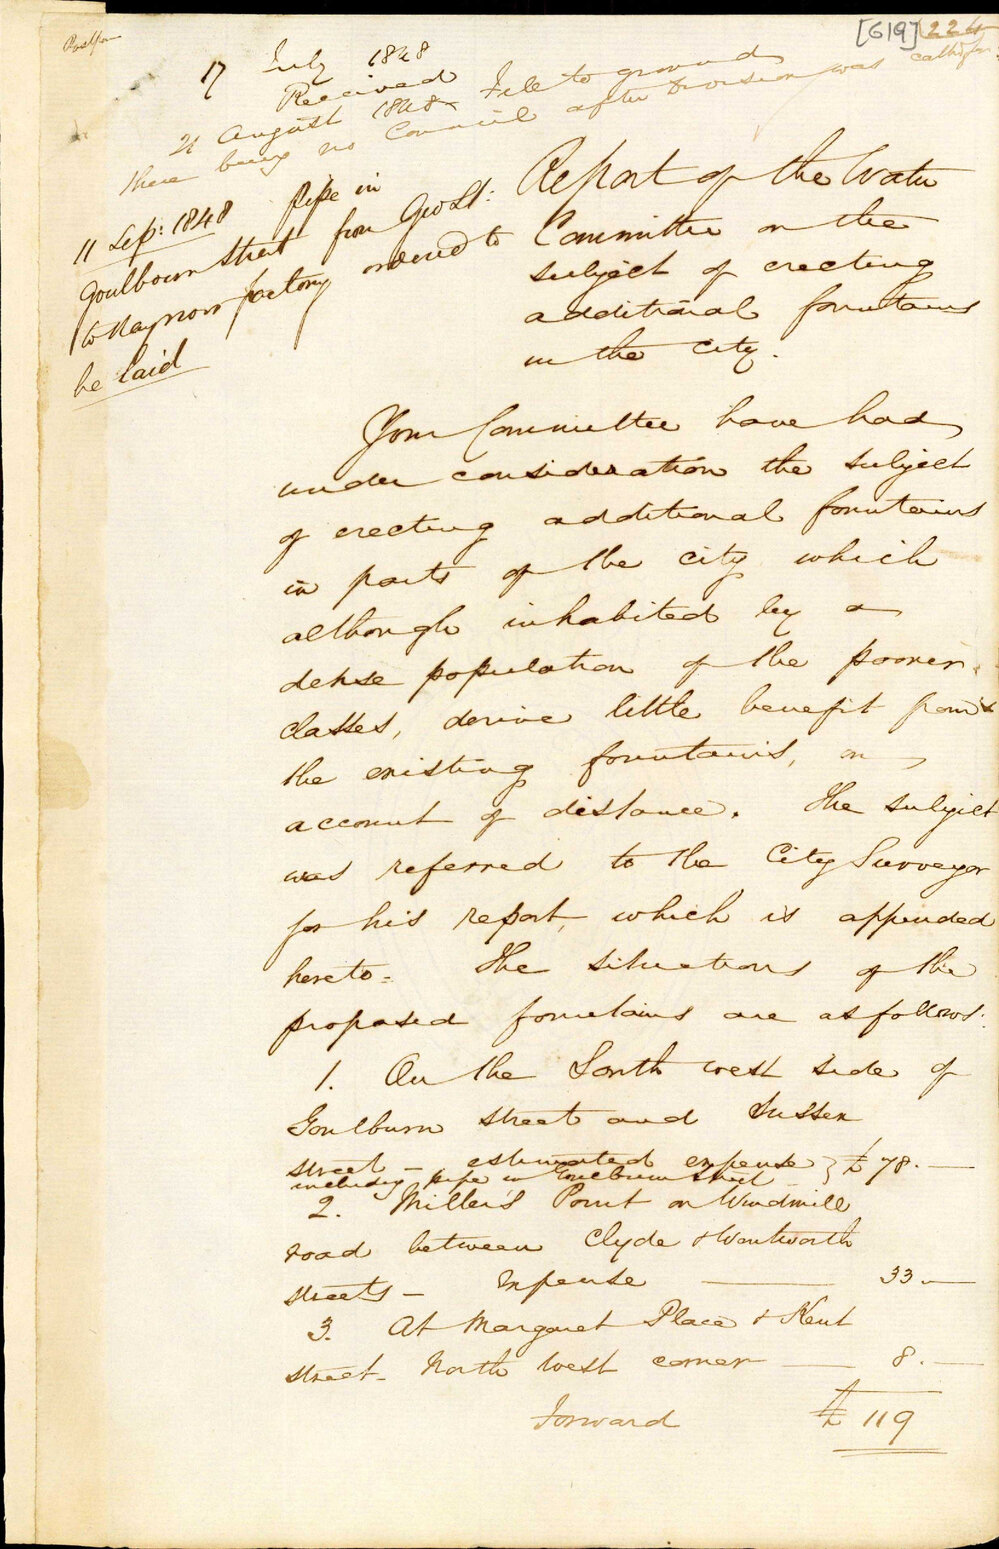 [619] 224
17 July 1848
Received
21 August 1848 Fell to ground
there being no Council after division was called for
11 Sep: 1848 pipe in
Goulbourn Street from Geo St:
to Haymow factory ordered to
be laid
Report of the Water
Committee on the
subject of erecting
additional fountains
in the city.
Your Committee have had
under consideration the subject
of erecting additional fountains
in parts of the city which
although inhabited by a
dense population of the poorer
classes, derive little benefit from
the existing fountains, on
account of distance. The subject
was referred to the City Surveyor
for his report, which is appended
hereto. The situations of the
proposed fountains are as follows:
1. On the South west side of
Goulburn street and Sussex
street – estimated expense } £ 78. —
including pipe in Goulburn Street
2. Miller's Point on Windmill
road between Clyde & Wentworth
streets – Expense — 33 —
3. At Margaret Place & Kent
street – North West corner — 8. —
Forward £ 119